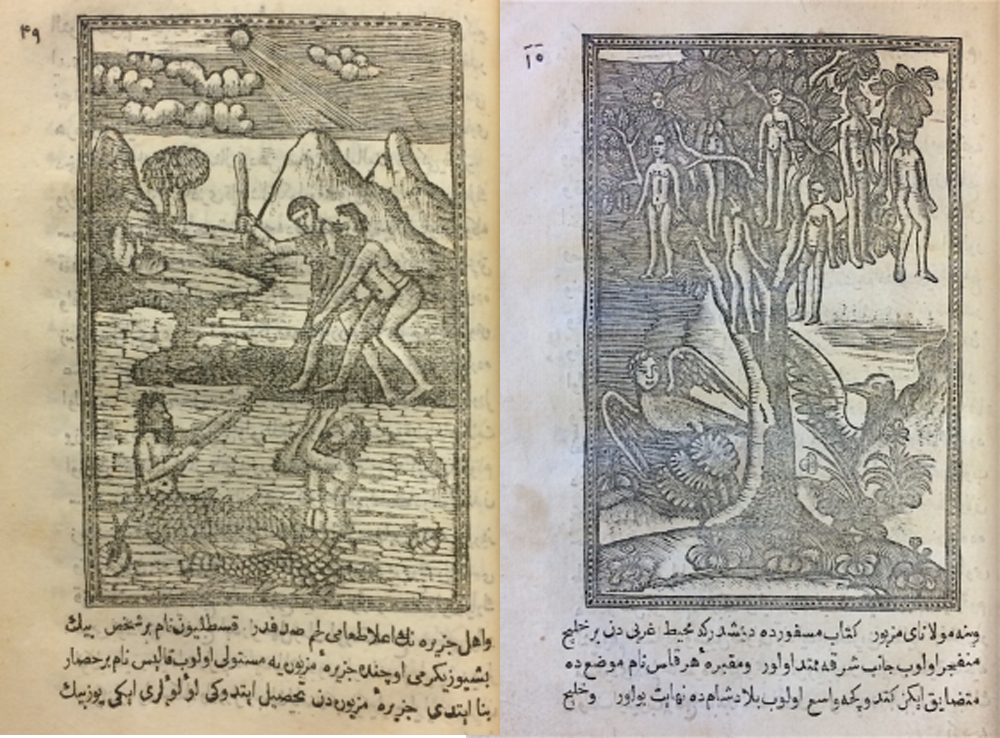 ۴۹
واهل جزیره نك اعلا طعامی لحم صدفدر قسطنیون نام بر شخص بیك
بشیوز یکرمی اوچنده جزیرهٔ مزبوره یه مستولی اولوب قالیس نام بر حصار
بنا ایتدی جزیرهٔ مزبوره دن تحصیل ایتدوکی لؤلؤلری ایکی یوز بیك
۱۵
وینه مولانای مزبور کتاب مسفورده دیمشدرکه محیط غربی دن بر خلیج
منفجر اولوب جانب شرقه ممتد اولور ومقبرهٔ هرقلس نام موضعده
متضایق ایکن کتدوکجه واسع اولوب بلاد شامده نهایت بولور وخلیج